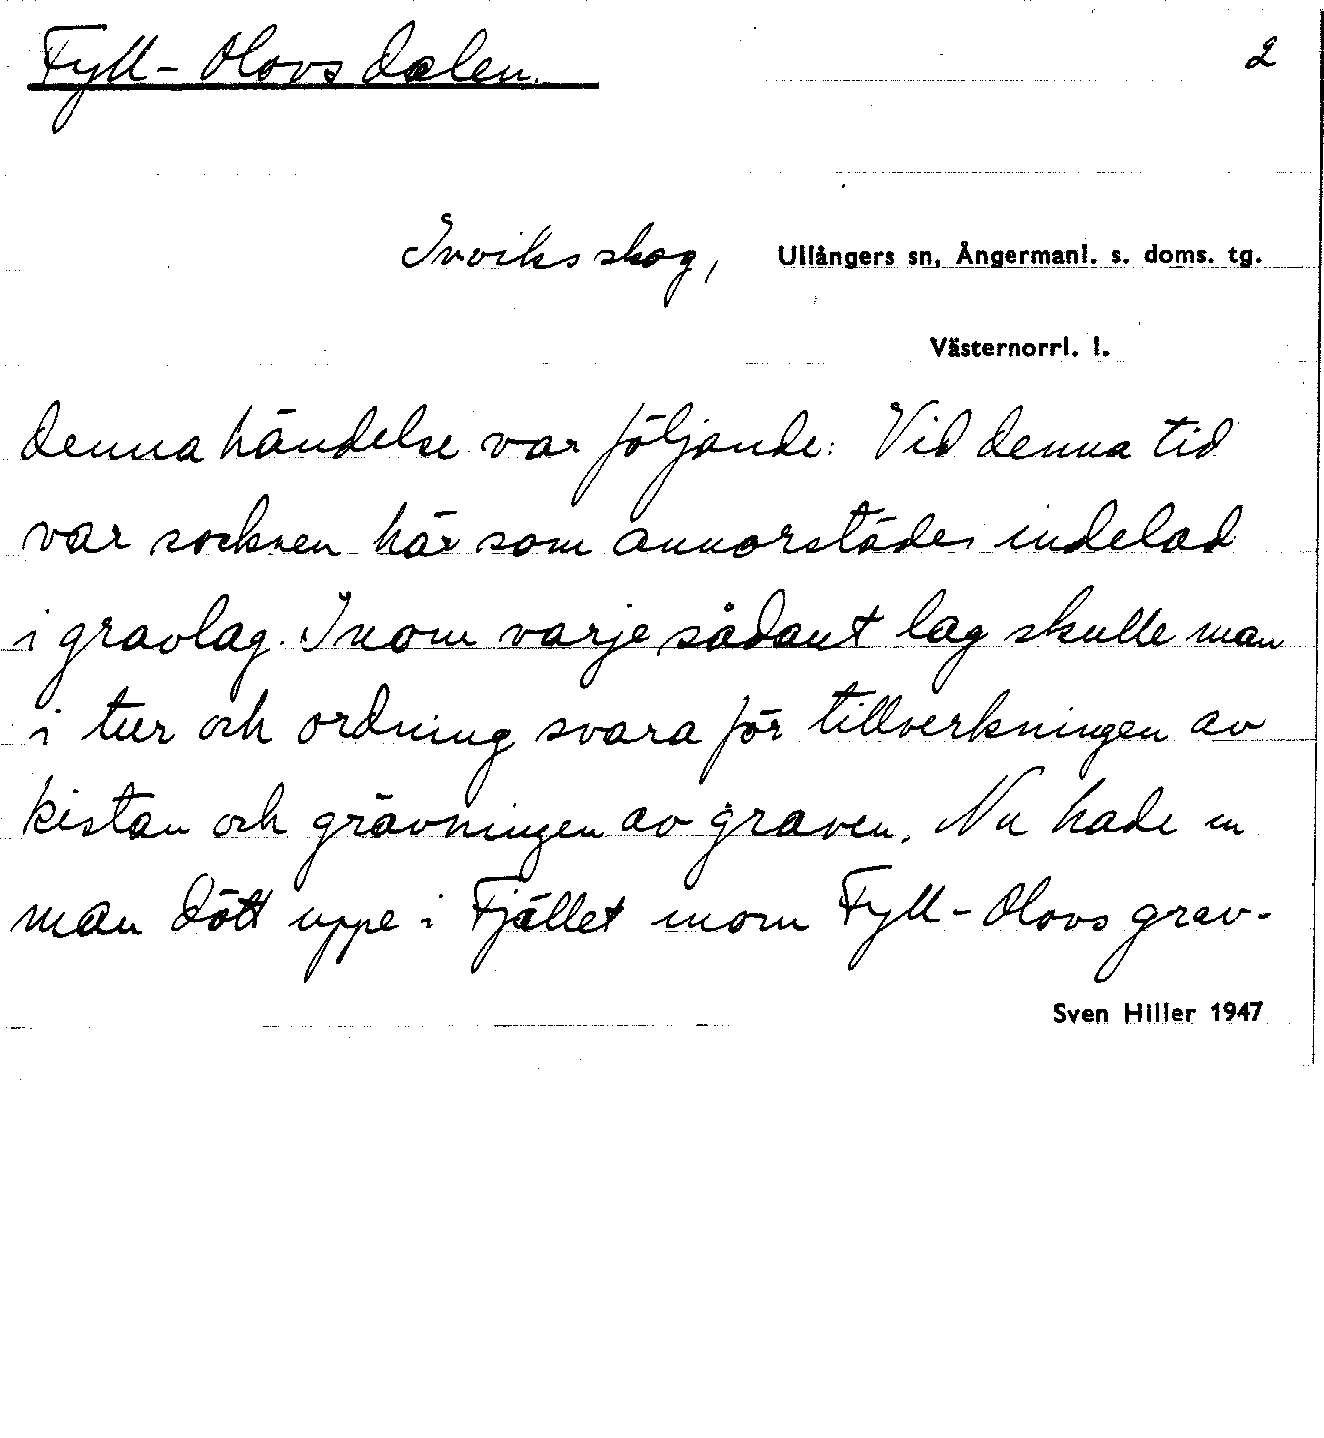 Fyll-Olovsdalen. 2
Inviksskog, Ullångers sn, Ångermanl. s. doms. tg.
Västernorrl. l.
denna händelse var följande: Vid denna tid
var socknen här som annorstädes indelad
i gravlag. Inom varje sådant lag skulle man
i tur och ordning svara för tillverkningen av
kistan och grävningen av graven. Nu hade en
man dött uppe i Fjället inom Fyll-Olovs grav-
Sven Hiller 1947